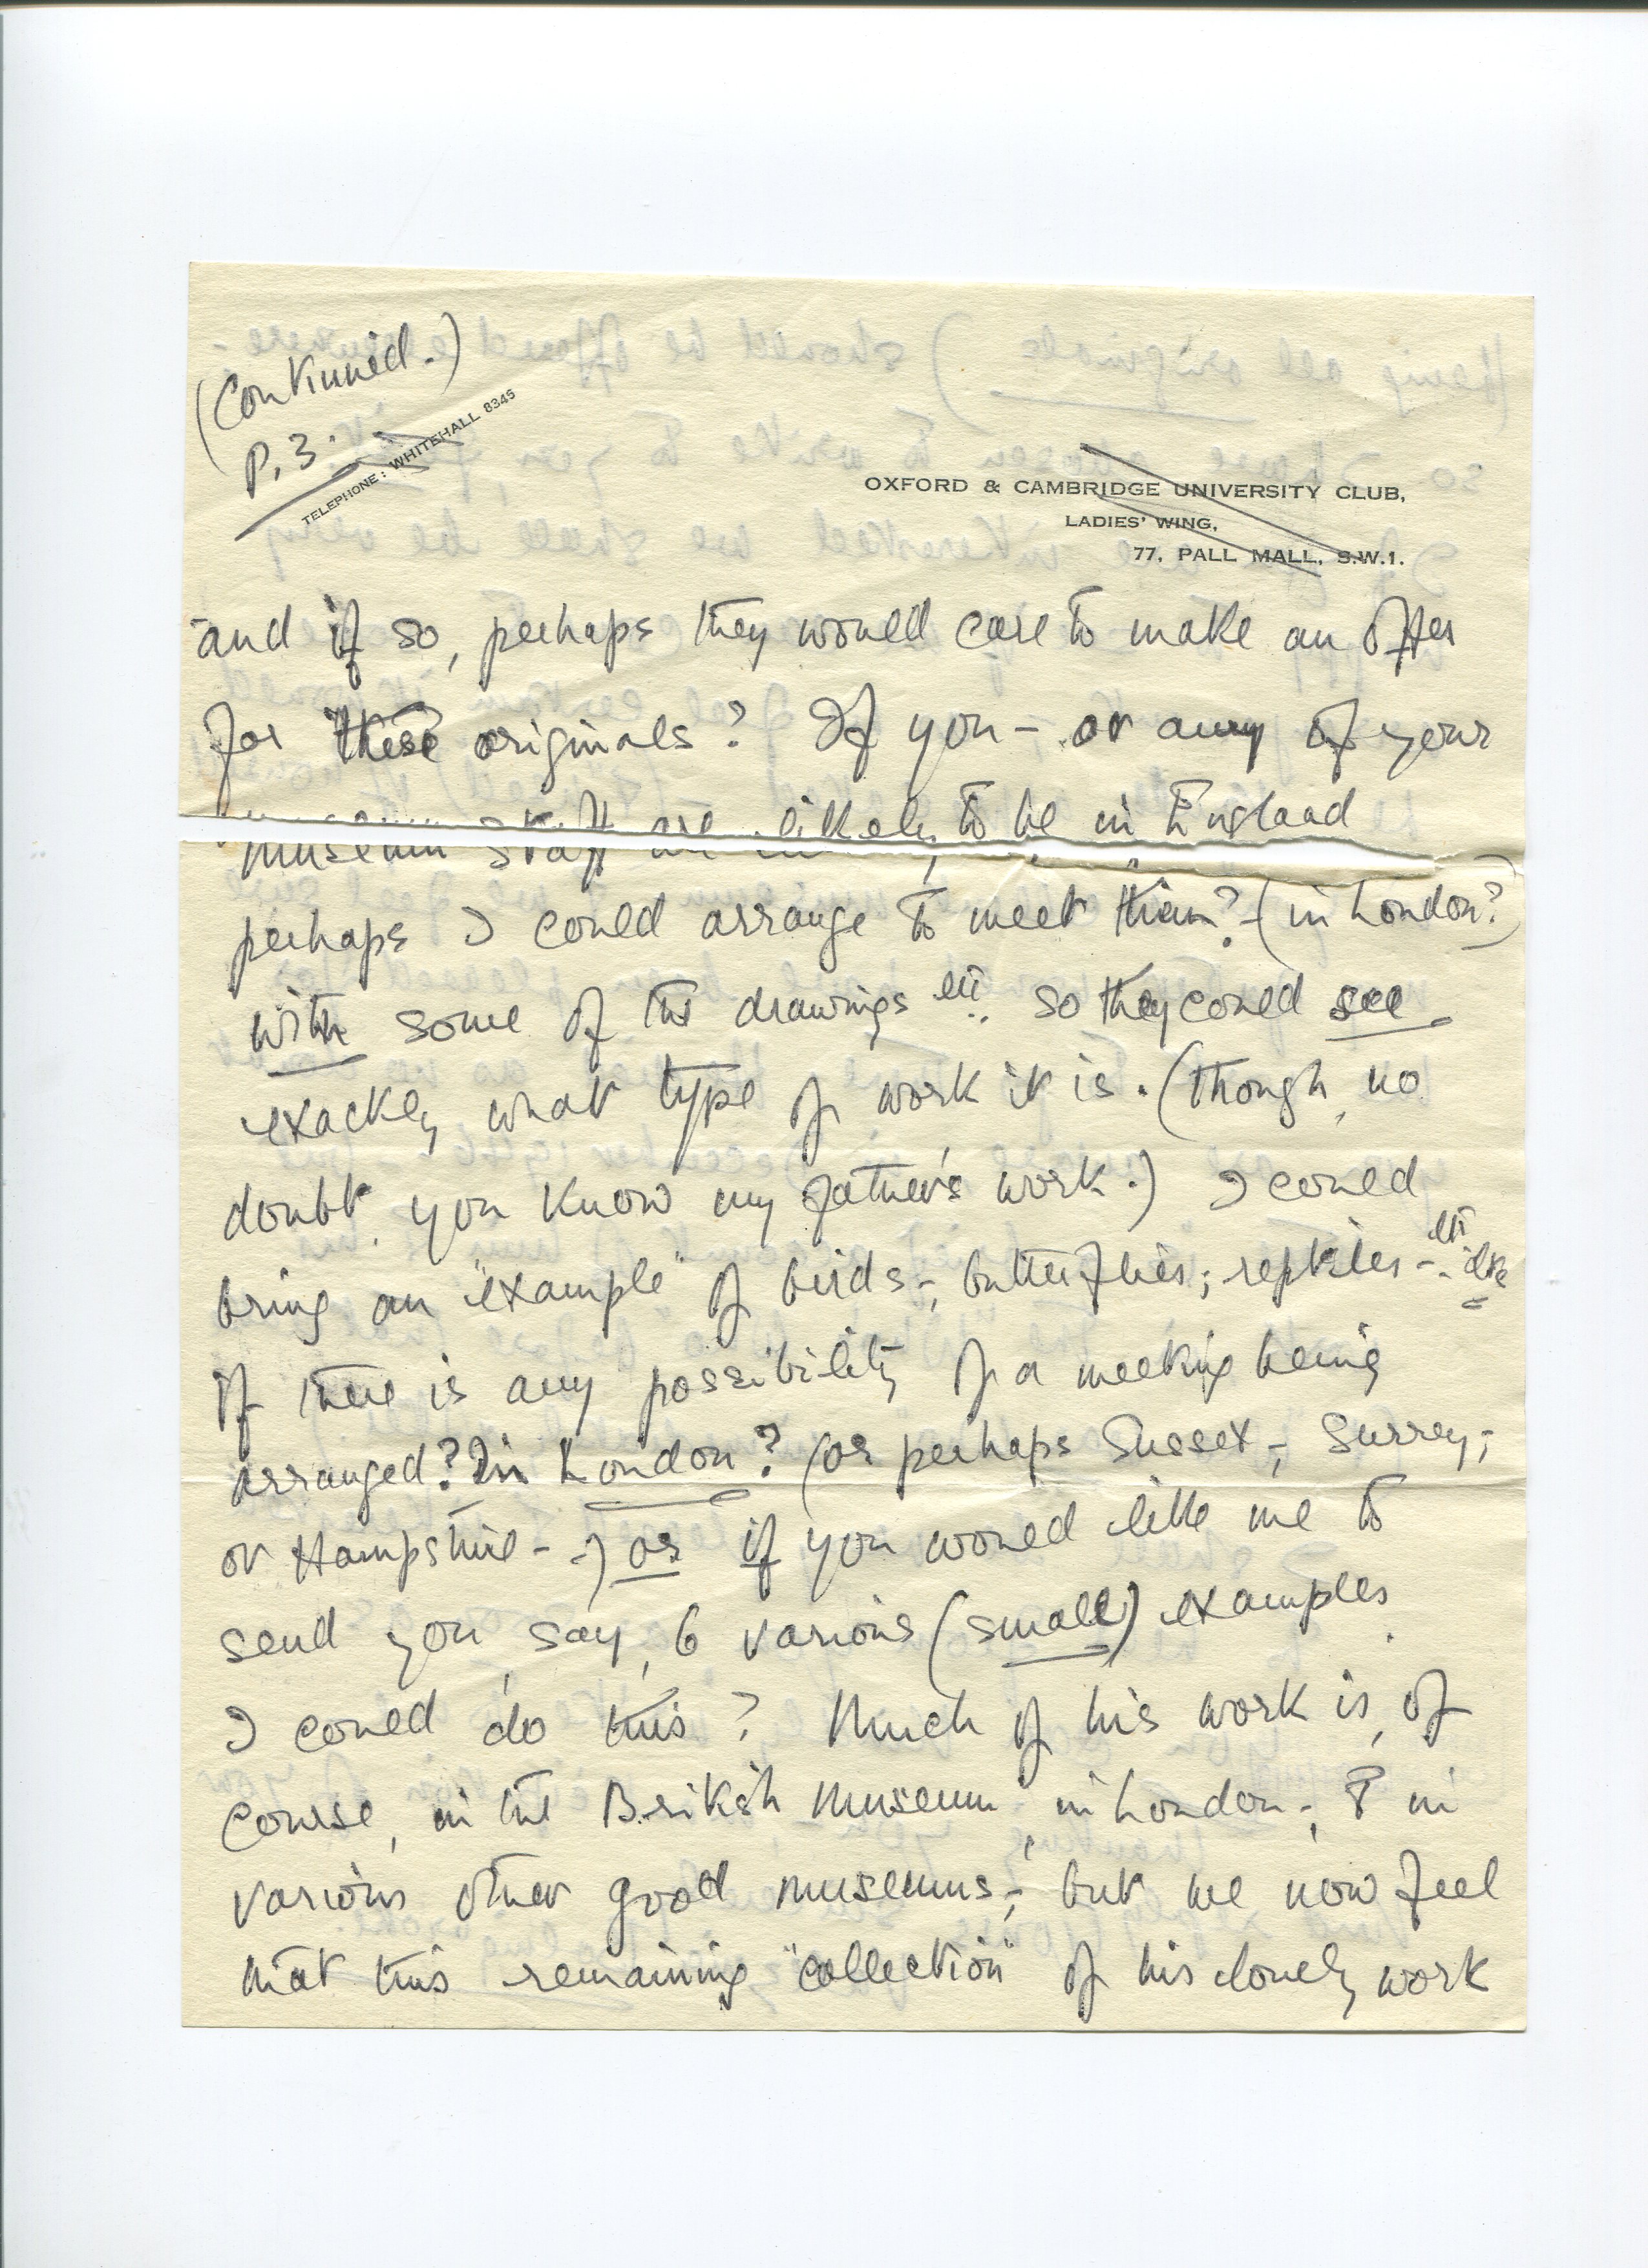 (Continued.)
P. 3.
TELEPHONE: WHITEHALL 8345
OXFORD & CAMBRIDGE UNIVERSITY CLUB,
LADIES' WING,
77, PALL MALL, S.W.1.
and if so, perhaps they would care to make an offer
for these originals? If you - or any of your
museum staff are likely to be in England
perhaps I could arrange to meet them? - (in London?)
with some of the drawings etc.. so they could see
exactly what type of work it is. (though, no
doubt, you know my father's work.) I could
bring an "example" of birds -; butterflies; reptiles - etc.
if there is any possibility of a meeting being
arranged? In London? (or perhaps Sussex -; Surrey;
or Hampshire - -) or if you would like me to
send you, say, 6 various (small) examples.
I could do this? Much of his work is, of
course, in the British Museum, in London -; & in
various other good museums -; but we now feel
that this remaining "collection" of his lovely work